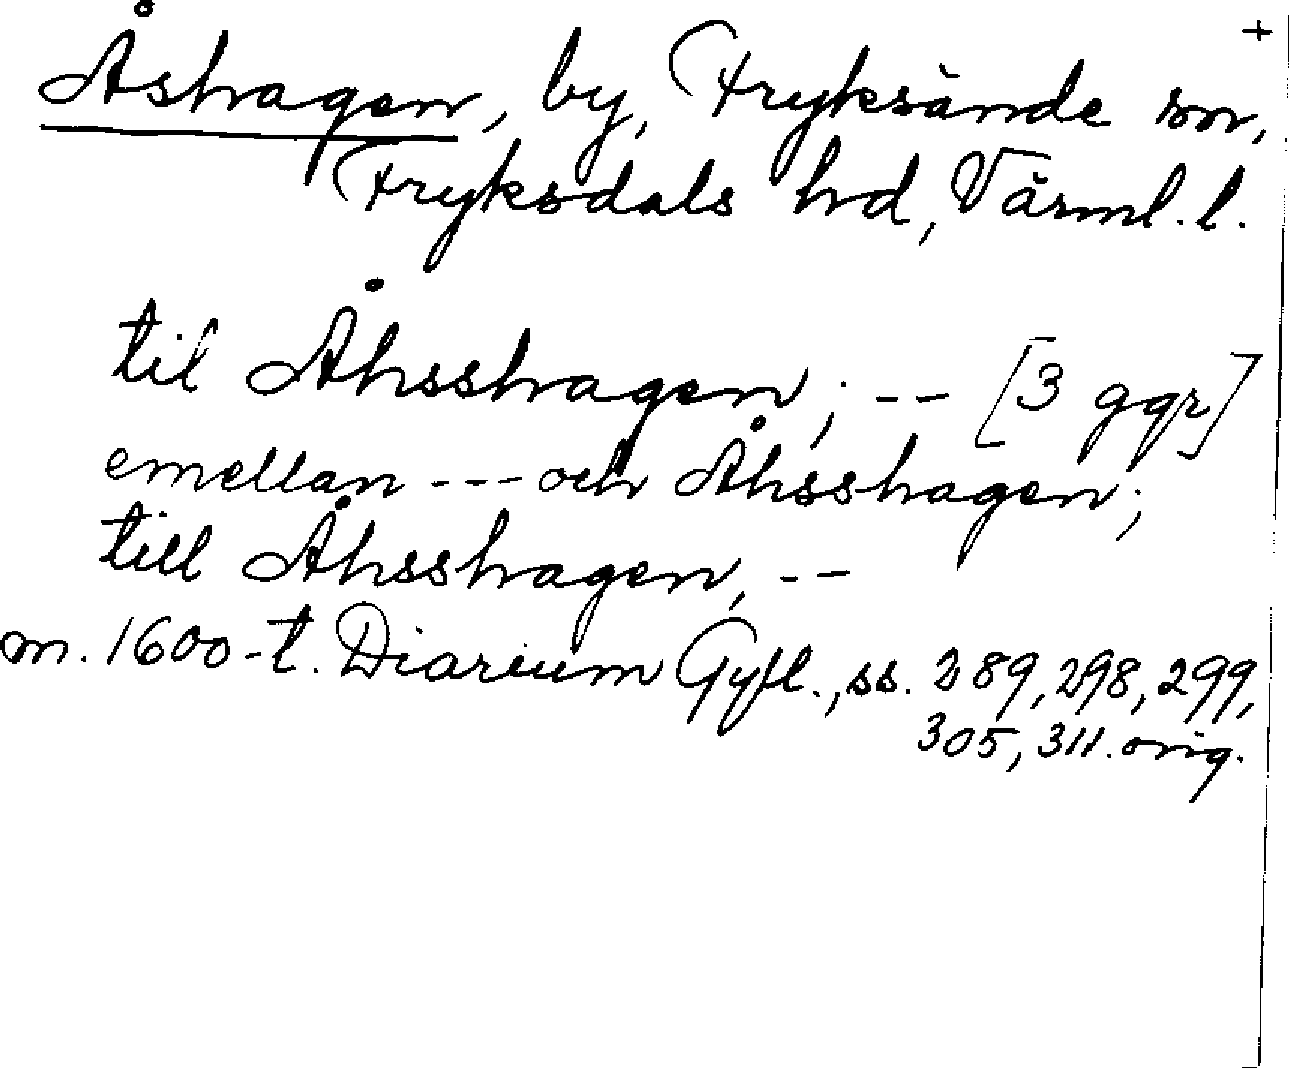 +
Åshagen, by, Fryksände sn,
Fryksdals hd, Värml. l.
til Åhsshagen; -- [3 ggr]
emellan --- och Åhsshagen;
till Åhsshagen, --
m. 1600-t. Diarium Gyll., ss. 289, 298, 299,
305, 311. orig.